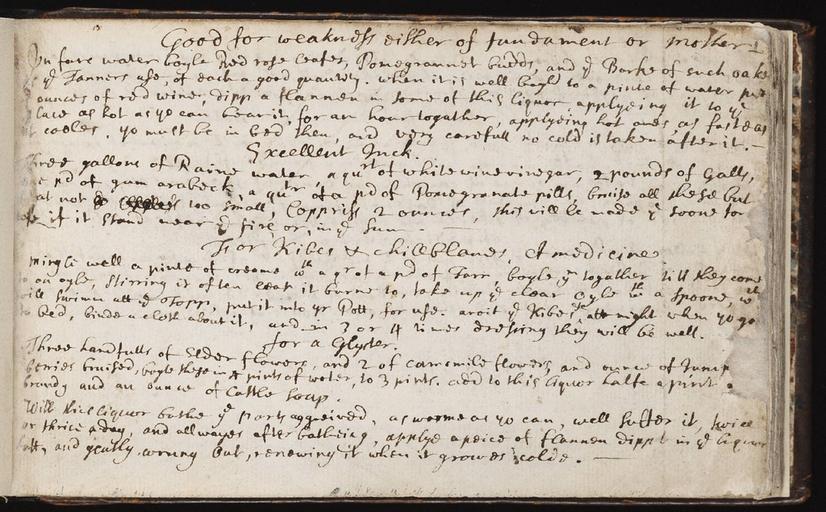 Good for weakness either of fundament or mother
In faire water boyle Red rose leaves, Pomegrannet budds, and ye Barke of such oake
ye Tanners use, of each a good quantety. when it is well boyld to a pinte of water put
ounces of red wine, dipp a flannen in some of this liquor applyeing it to ye
place as hot as yo can bear it, for an hour together, applyeing hot ones as fast as
it cooles, yo must be in bed then, and very carefull no cold is taken after it. —
Excellent Inck.
Three gallons of Raine water, a qurt of white wine vinegar, 2 pounds of Galls,
pd of gum arabeck, a qutr of a pd of Pomegranate pills, bruise all these but
not too small, Coppriss 2 ounces, this will be made ye sooner for
if it stand near ye fire or, in ye sun. —
For Kibes & chillblanes, A medicine
mingle well a pinte of creame wth a qrt of a pd of Tarr boyle ym togather till they come
to an oyle, stirring it often least it burne to, take up ye clear oyle wth a spoone, wch
will swimm att ye topp, put it into yr Pott, for use. anoit ye Kibes att night when yo go
to Bed, binde a cloth about it, and in 3 or 4 times dressing they will be well.
for a Glyster.
Three handfulls of Elder flowers, and 2 of cammile flowers, and ounce of Junip
berries bruised, boyle these in 4 pints of water, to 3 pints. add to this liquor halfe a pint
brandy and an ounce of Castle soap.
With this liquor bathe ye parts aggreived, as warme as yo can, well suffer it, twice
or thrice a day, and allwayes after batheing, applye a peice of flannen dippt in ye liquor
hott, and gently wrung out, renewing it when it growes colde. —